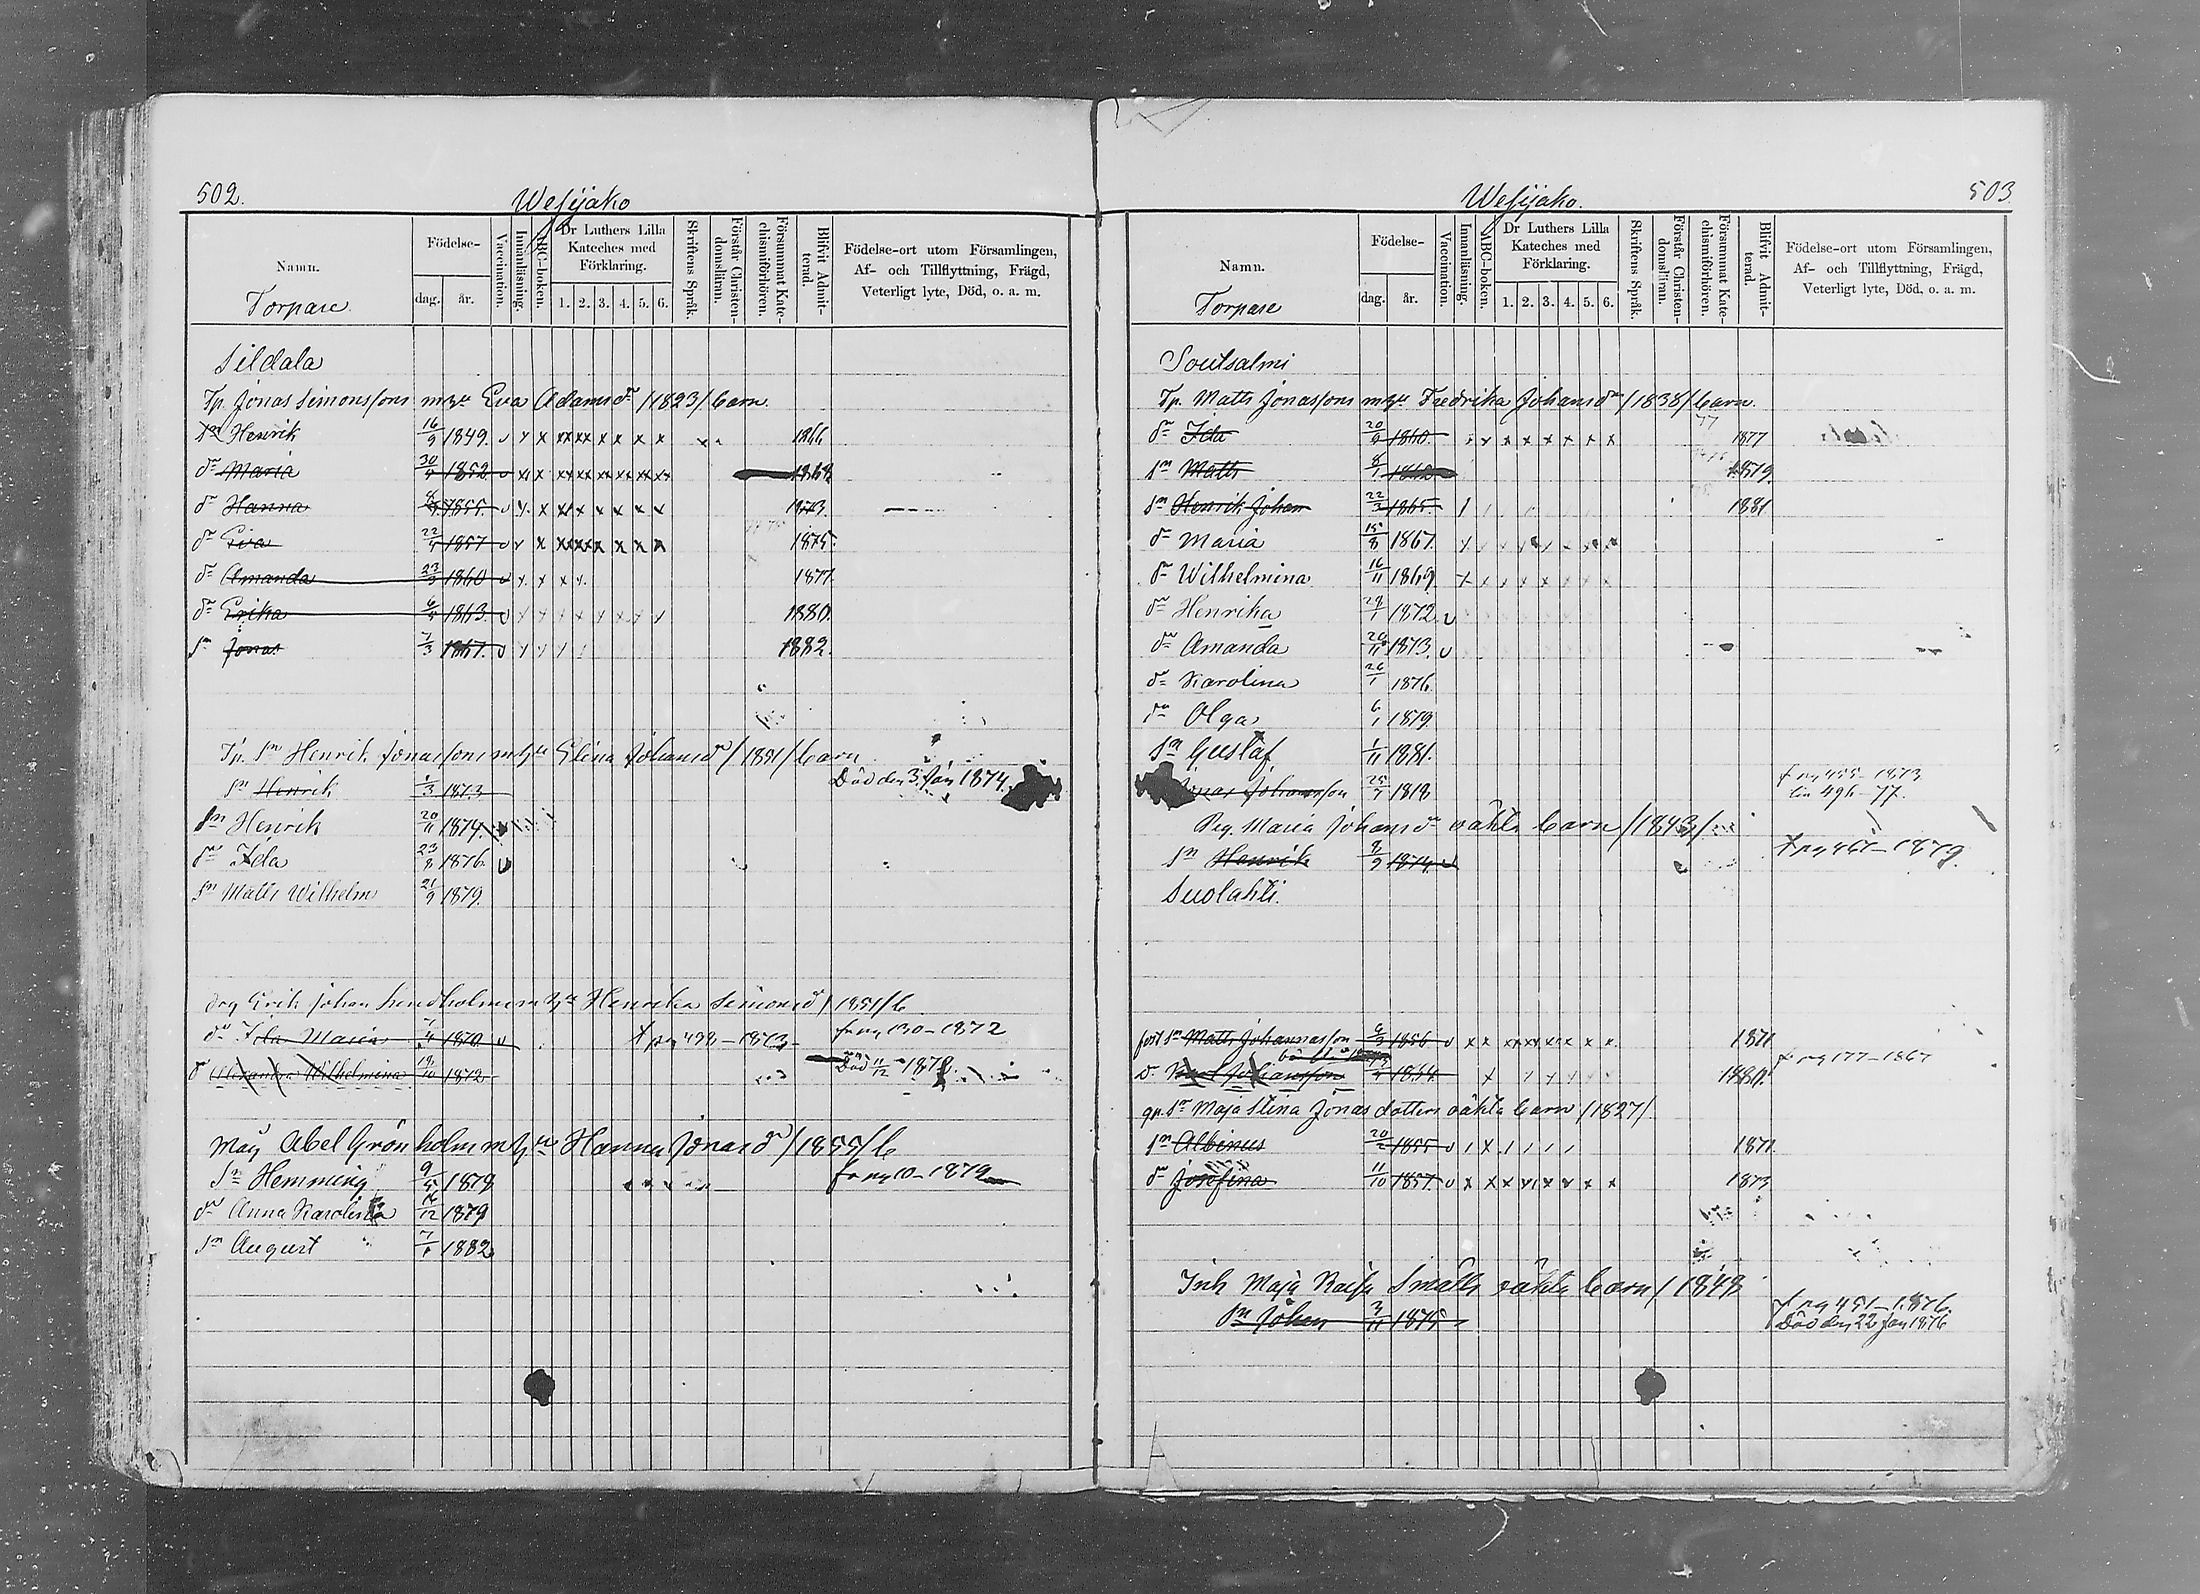 502.
Wesijako
Namn.
Torpare
Födelse-
dag.
år.
Vaccination.
Innanläsning.
ABC-boken.
Dr Luthers Lilla
Kateches med
Förklaring.
1. 2. 3. 4. 5. 6.
Skriftens Språk.
Förstår Christen-
domsläran.
Försummat Kate-
chismiförhören.
Blifvit Admit-
terad.
Födelse-ort utom Församlingen,
Af- och Tillflyttning, Frägd,
Veterligt lyte, Död, o. a. m.
Sildala
Tp. Jonas Simonssons Eva Adamsdr /1823/ barn
sn Henrik 16/9 1849. 1866
dr Maria 30/ 1852 1868
dr Hanna 8/ 1855. 1873.
dr Eva 22/ 1857 1875.
dr Amanda 23/ 1860 1877
dr Erika 6/ 1863. 1880.
sn Jonas 7/3 1867. 1882.
Tp. sn Henrik Jonassons Elina Johansdr /1851/ barn
sn Henrik 1/3 1873 Död den 3 Jan 1874.
sn Henrik 20/11 1874.
dr Ida 23/8 1876.
sn Matts Wilhelm 21/9 1879.
Erik Johan Lindholms Henrika Simonsd /1851/ b
dr Ida Maria 7/4 1870. t pg 498 - 1873 fr pg 130 - 1872
dr Alexandra Wilhelmina 18/10 1872 Död 11/12 1872.
Abel Grönholm Hanna Jonasdr /1855/ b
sn Hemming 9/5 1878 fr pg 10 - 1879
dr Anna Karolina 14/12 1879
sn August 7/ 1882
Wesijako.
503
Namn.
Torpare
Födelse-
dag.
år.
Vaccination.
Innanläsning.
ABC-boken.
Dr Luthers Lilla
Kateches med
Förklaring.
1. 2. 3. 4. 5. 6.
Skriftens Språk.
Förstår Christen-
domsläran.
Försummat Kate-
chismiförhören.
Blifvit Admit-
terad.
Födelse-ort utom Församlingen,
Af- och Tillflyttning, Frägd,
Veterligt lyte, Död, o. a. m.
Soutsalmi
Tp. Matts Jonassons Fredrika Johansdr /1838/ barn
dr Ida 20/ 1860. 1877
sn Matts 8/1 1879.
sn Henrik Johan 22/3 1865. 1881
dr Maria 15/8 1867.
dr Wilhelmina 16/11 1869
dr Henrika 29/1 1872
dr Amanda 20/11 1873.
dr Karolina 26/1 1876.
dr Olga 6/1 1879
sn Gustaf 1/11 1881.
Jonas Johansson 25/7 1818 f pg 455 - 1873
77.
Pig. Maria Johansdr oäkta barn /1843/
sn Henrik 8/9 1874.
Suolahti.
sn Matts Johannasson 6/3 1856 1871
Johansson 1864. 1880. f pg 177 - 1867
Maja Stina Jonasdotters oäkta barn /1827/
sn Albinus 20/2 1855 1871
dr Josefina 11/10 1857. 1873
Inh Maja Kaisa Smatts oäkta barn / 1848
sn Johan 3/11 1875 f pg 451 - 1876.
Död den 22 Jan 1876